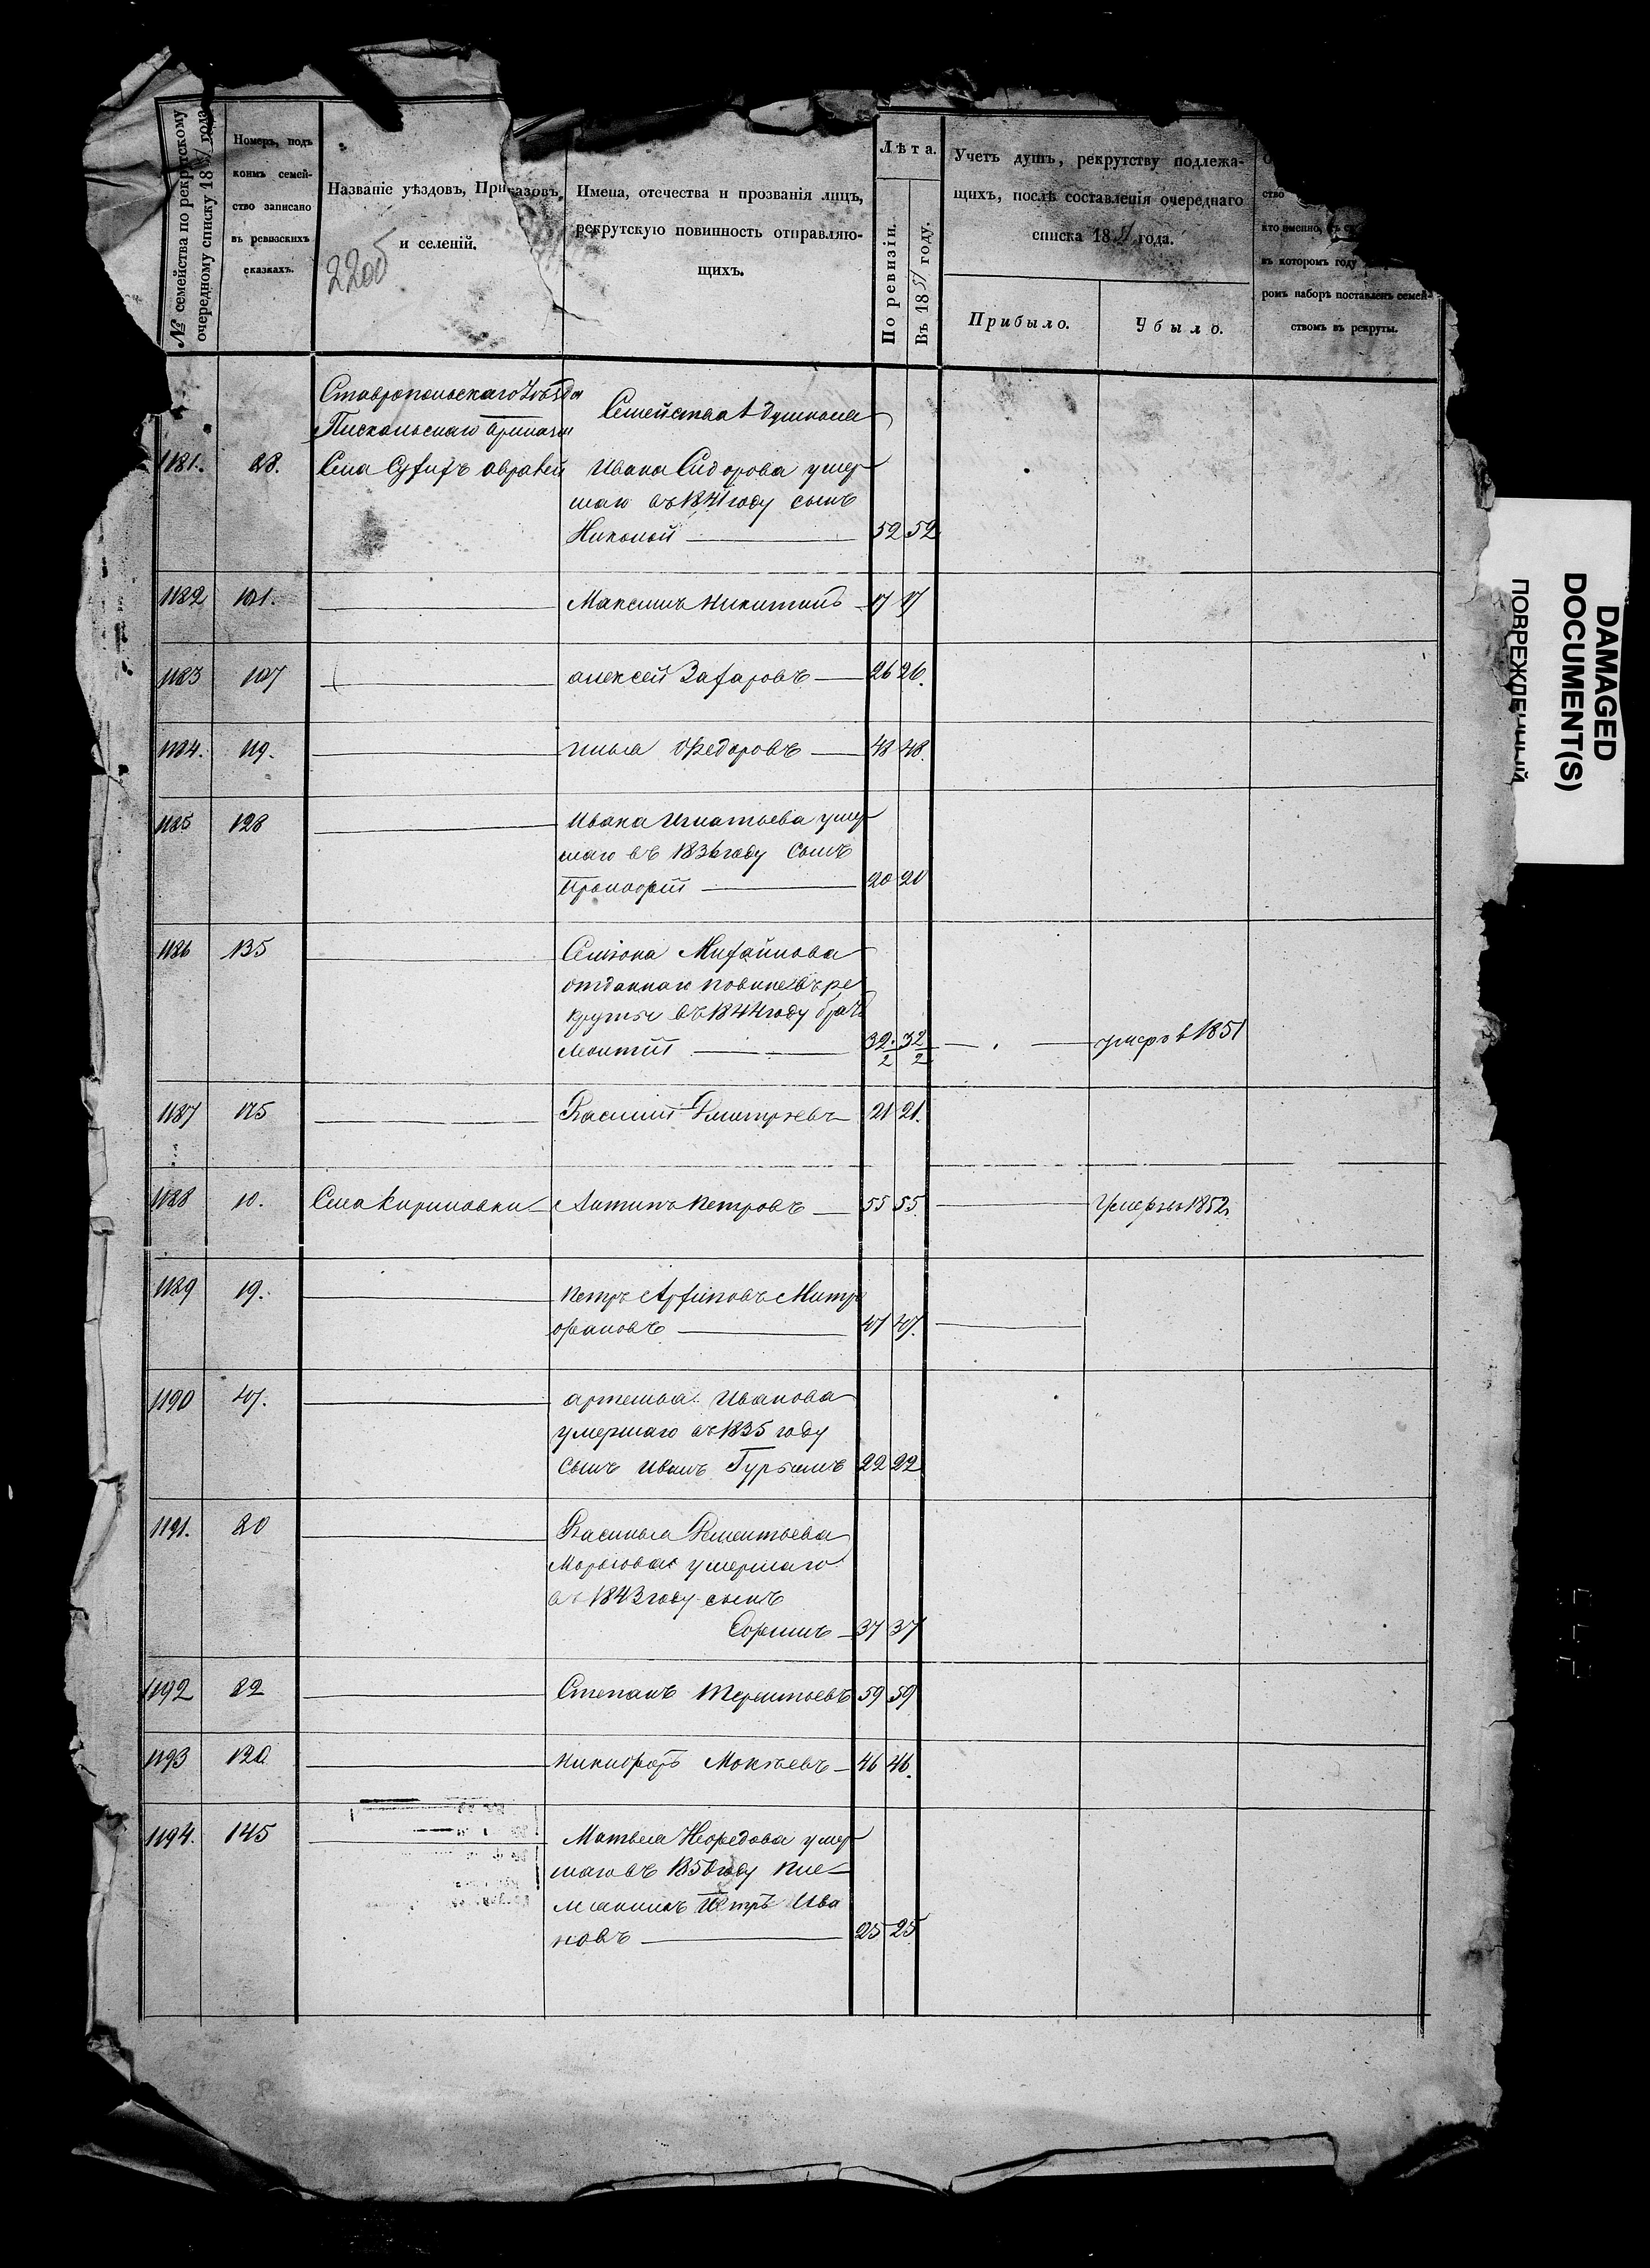 № семейства по рекрутскому
очередному списку 1851 года
Номеръ, подъ
коимъ семей-
ство записано
въ ревизскихъ
сказкахъ.
Названіе уѣздовъ, Приказовъ,
и селеній.
2200
Имена, отечества и прозванія лицъ,
рекрутскую повинность отправляю-
щихъ.
Лѣта.
По ревизіи.
Въ 1851 году.
Учетъ душъ, рекрутству подлежа-
щихъ, послѣ составленія очереднаго
списка 1851 года.
Прибыло.
Убыло.
ство
кто именно, въ
въ которомъ году
ромъ наборѣ поставленъ семей-
ствомъ въ рекруты.
Ставропольскаго Уѣзда
Семейства 1 душныя
1181. 28. Села Сухихъ Ивана Сидорова умер
шаго въ 1841 году сынъ
Николай 52 52
1182 101. Максимъ Никитинъ 17 17
1183 107 Алексей Захаровъ 26 26.
1184. 119. Илья Федоровъ 48 48.
1185 128 Ивана Игнатьева умер
шаго въ 1836 году сынъ
Прокофій 20 20
1186 135 Семіона Михайлова
отданнаго въ ре
круты въ 1844 году братъ
Леонтій 32/2 32/2 умеръ в 1851
1187 175 Василій Дмитріевъ 21 21.
1188 10. Села Кириловки Антипъ Петровъ 55 55. Умеръ въ 1852.
1189 19. Петръ Архиповъ Митро
фановъ 47 47.
1190 47. Артемья Иванова
умершаго въ 1835 году
сынъ Иванъ Гурьянъ 22 22
1191. 80 Василья Дементьева
умершаго
въ 1843 году сынъ
Ефимъ 37 37
1192 82 Степанъ Терентьевъ 59 59
1193 120 Никифоръ Мокѣевъ 46 46.
1194. 145 Матвея Нефедова умер
шаго въ 1850 году пле
мянникъ Петръ Ива
новъ 25 25
DAMAGED
DOCUMENT(S)
ПОВРЕЖДЕННЫЙ